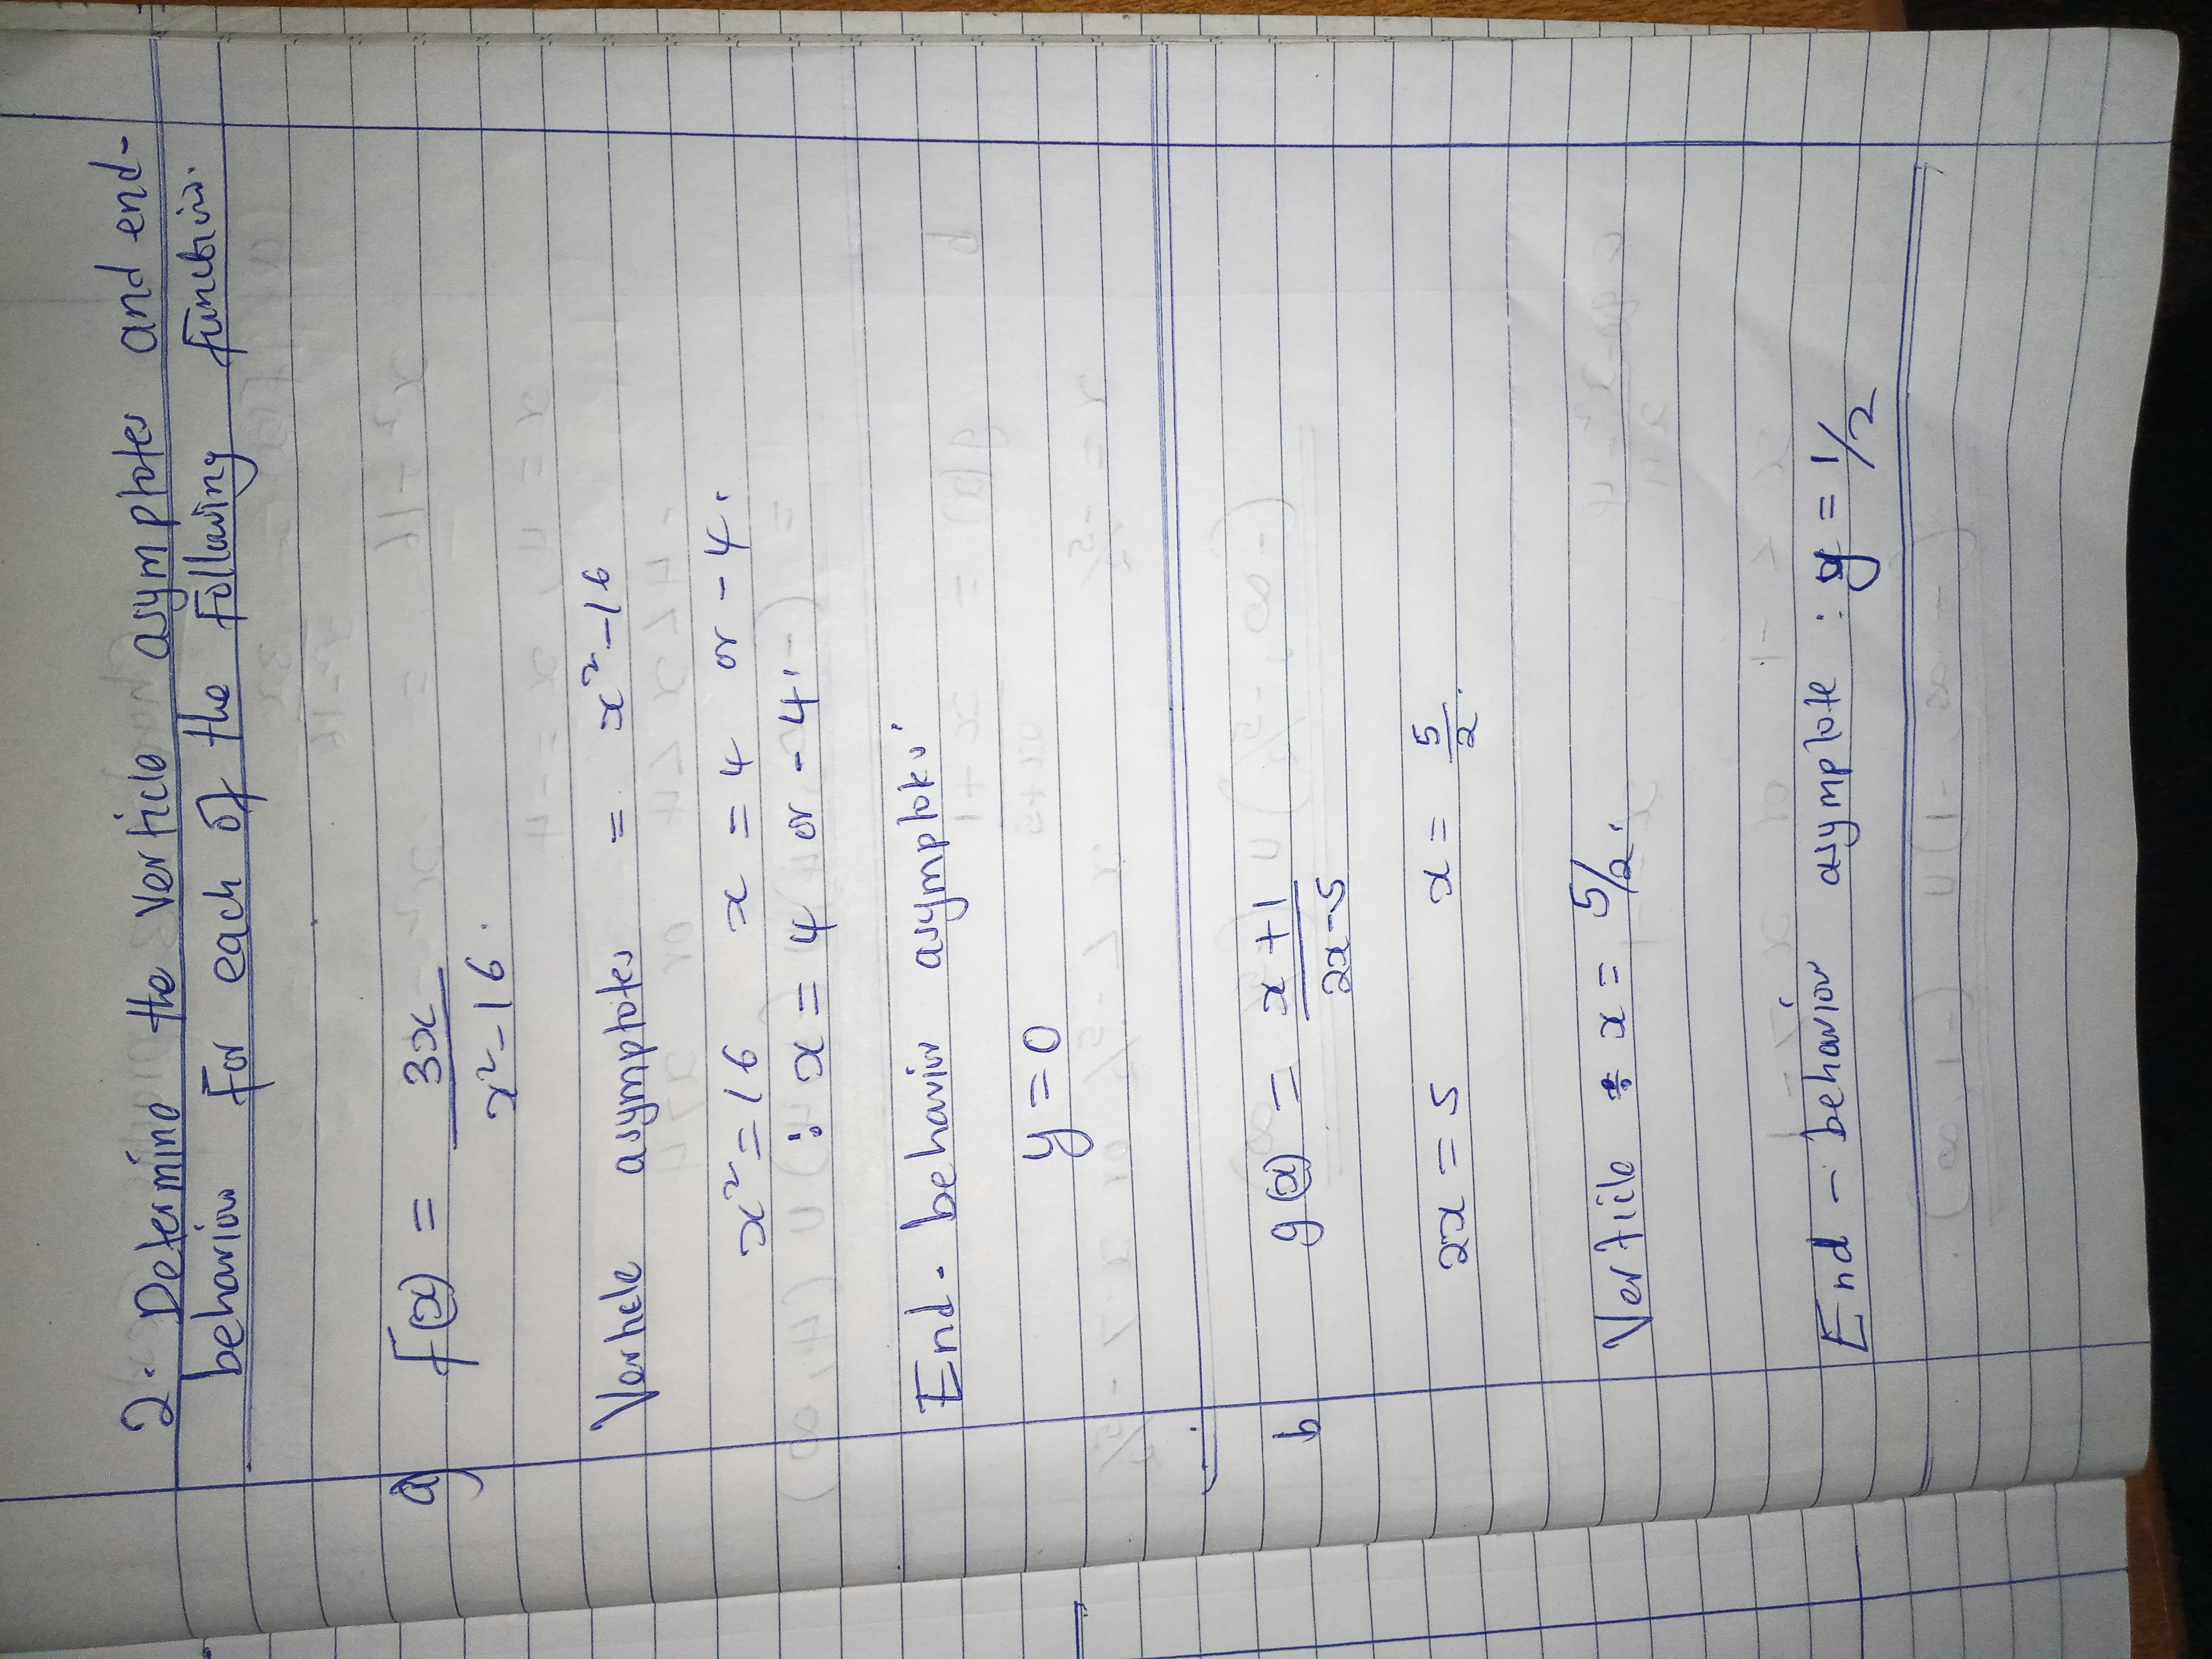 2. Determine the Verticle asymptotes and end-
behavior for each of the Following Function.
a) F(x) = 3x / x²-16.
Verticle asymptotes = x²-16
x²=16 x = 4 or -4.
∴ x = 4 or -4.
End-behavior asymptote
y=0
b g(x) = x+1 / 2x-5
2x=5 x= 5/2.
Verticle : x = 5/2.
End-behavior asymptote : y = 1/2